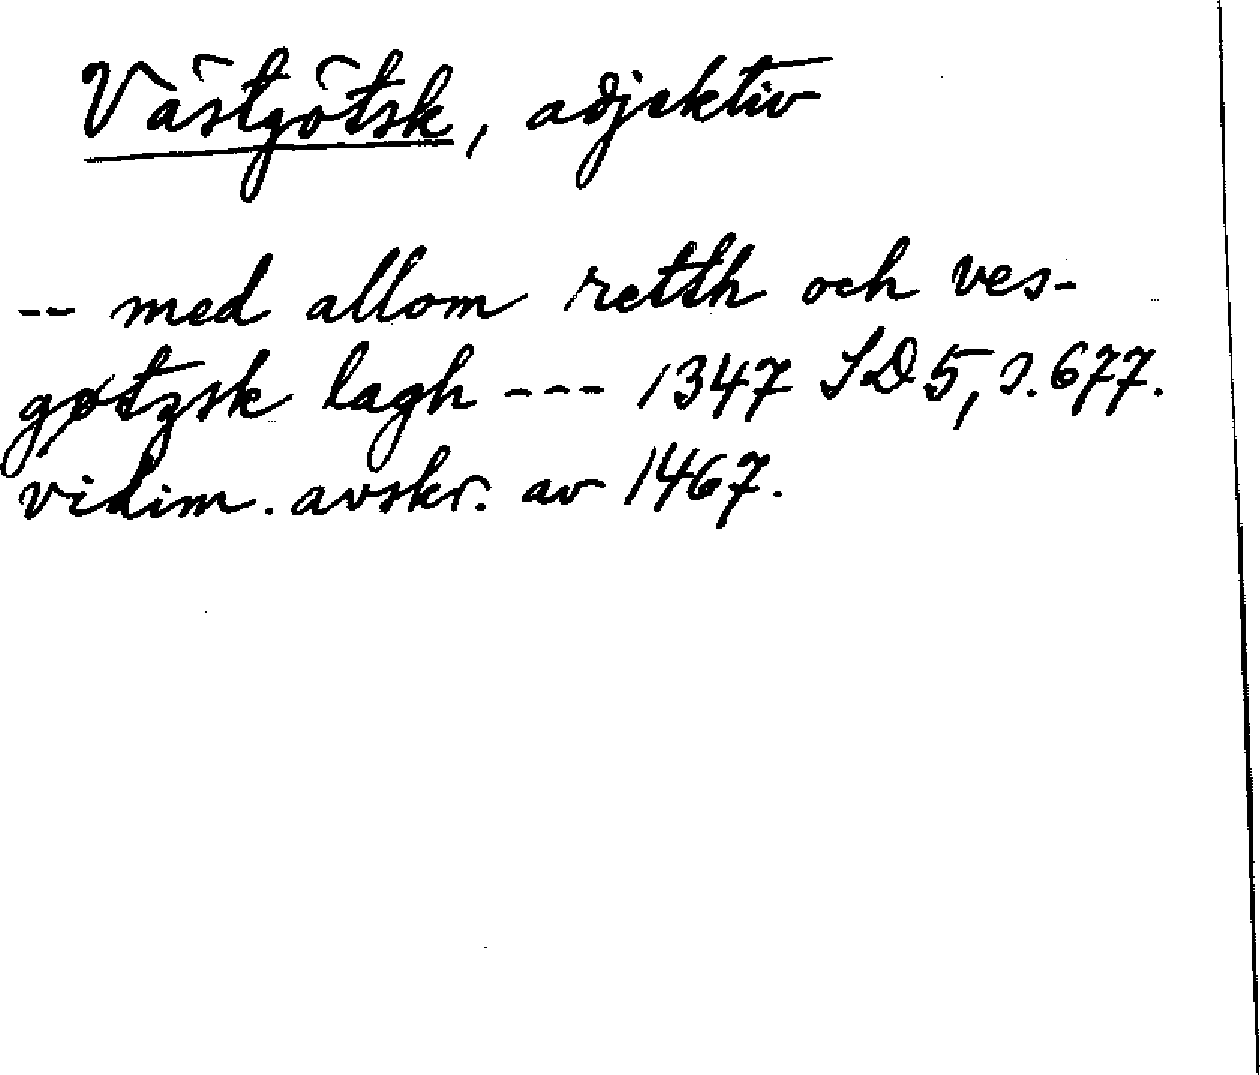 Västgötsk, adjektiv
-- med allom retth och ves-
gøtzsk lagh --- 1347 SD 5, s. 677.
vidim. avskr. av 1467.